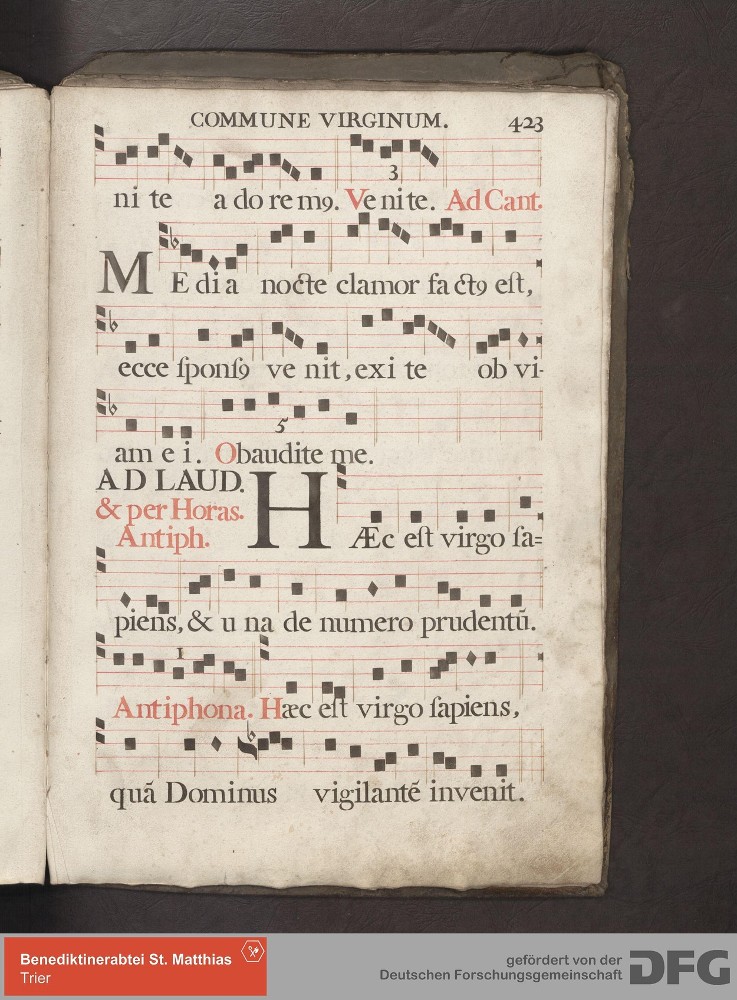 COMMUNE VIRGINUM. 423
3
ni te a do re mꝰ. Ve ni te. Ad Cant.
ME di a nocte clamor fa ctꝰ eſt,
ecce ſponſꝰ ve nit, exi te ob vi-
5
am e i. Obaudite me.
AD LAUD.
& per Horas.
Antiph.
HÆc eſt virgo ſa=
piens, & u na de numero prudentū.
1
Antiphona. Hæc eſt virgo ſapiens,
quā Dominus vigilantē invenit.
Benediktinerabtei St. Matthias
Trier
gefördert von der
Deutschen Forschungsgemeinschaft
DFG